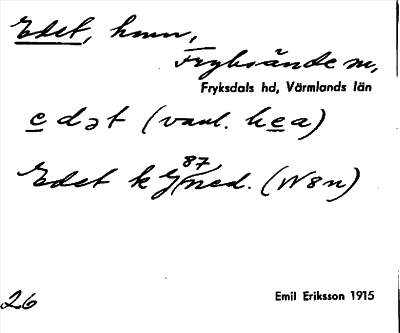 Edet, hmn,
Fryksände sn,
Fryksdals hd, Värmlands län
e dət (vanl. hea)
87
Edet k ned. (N8n)
26
Emil Eriksson 1915